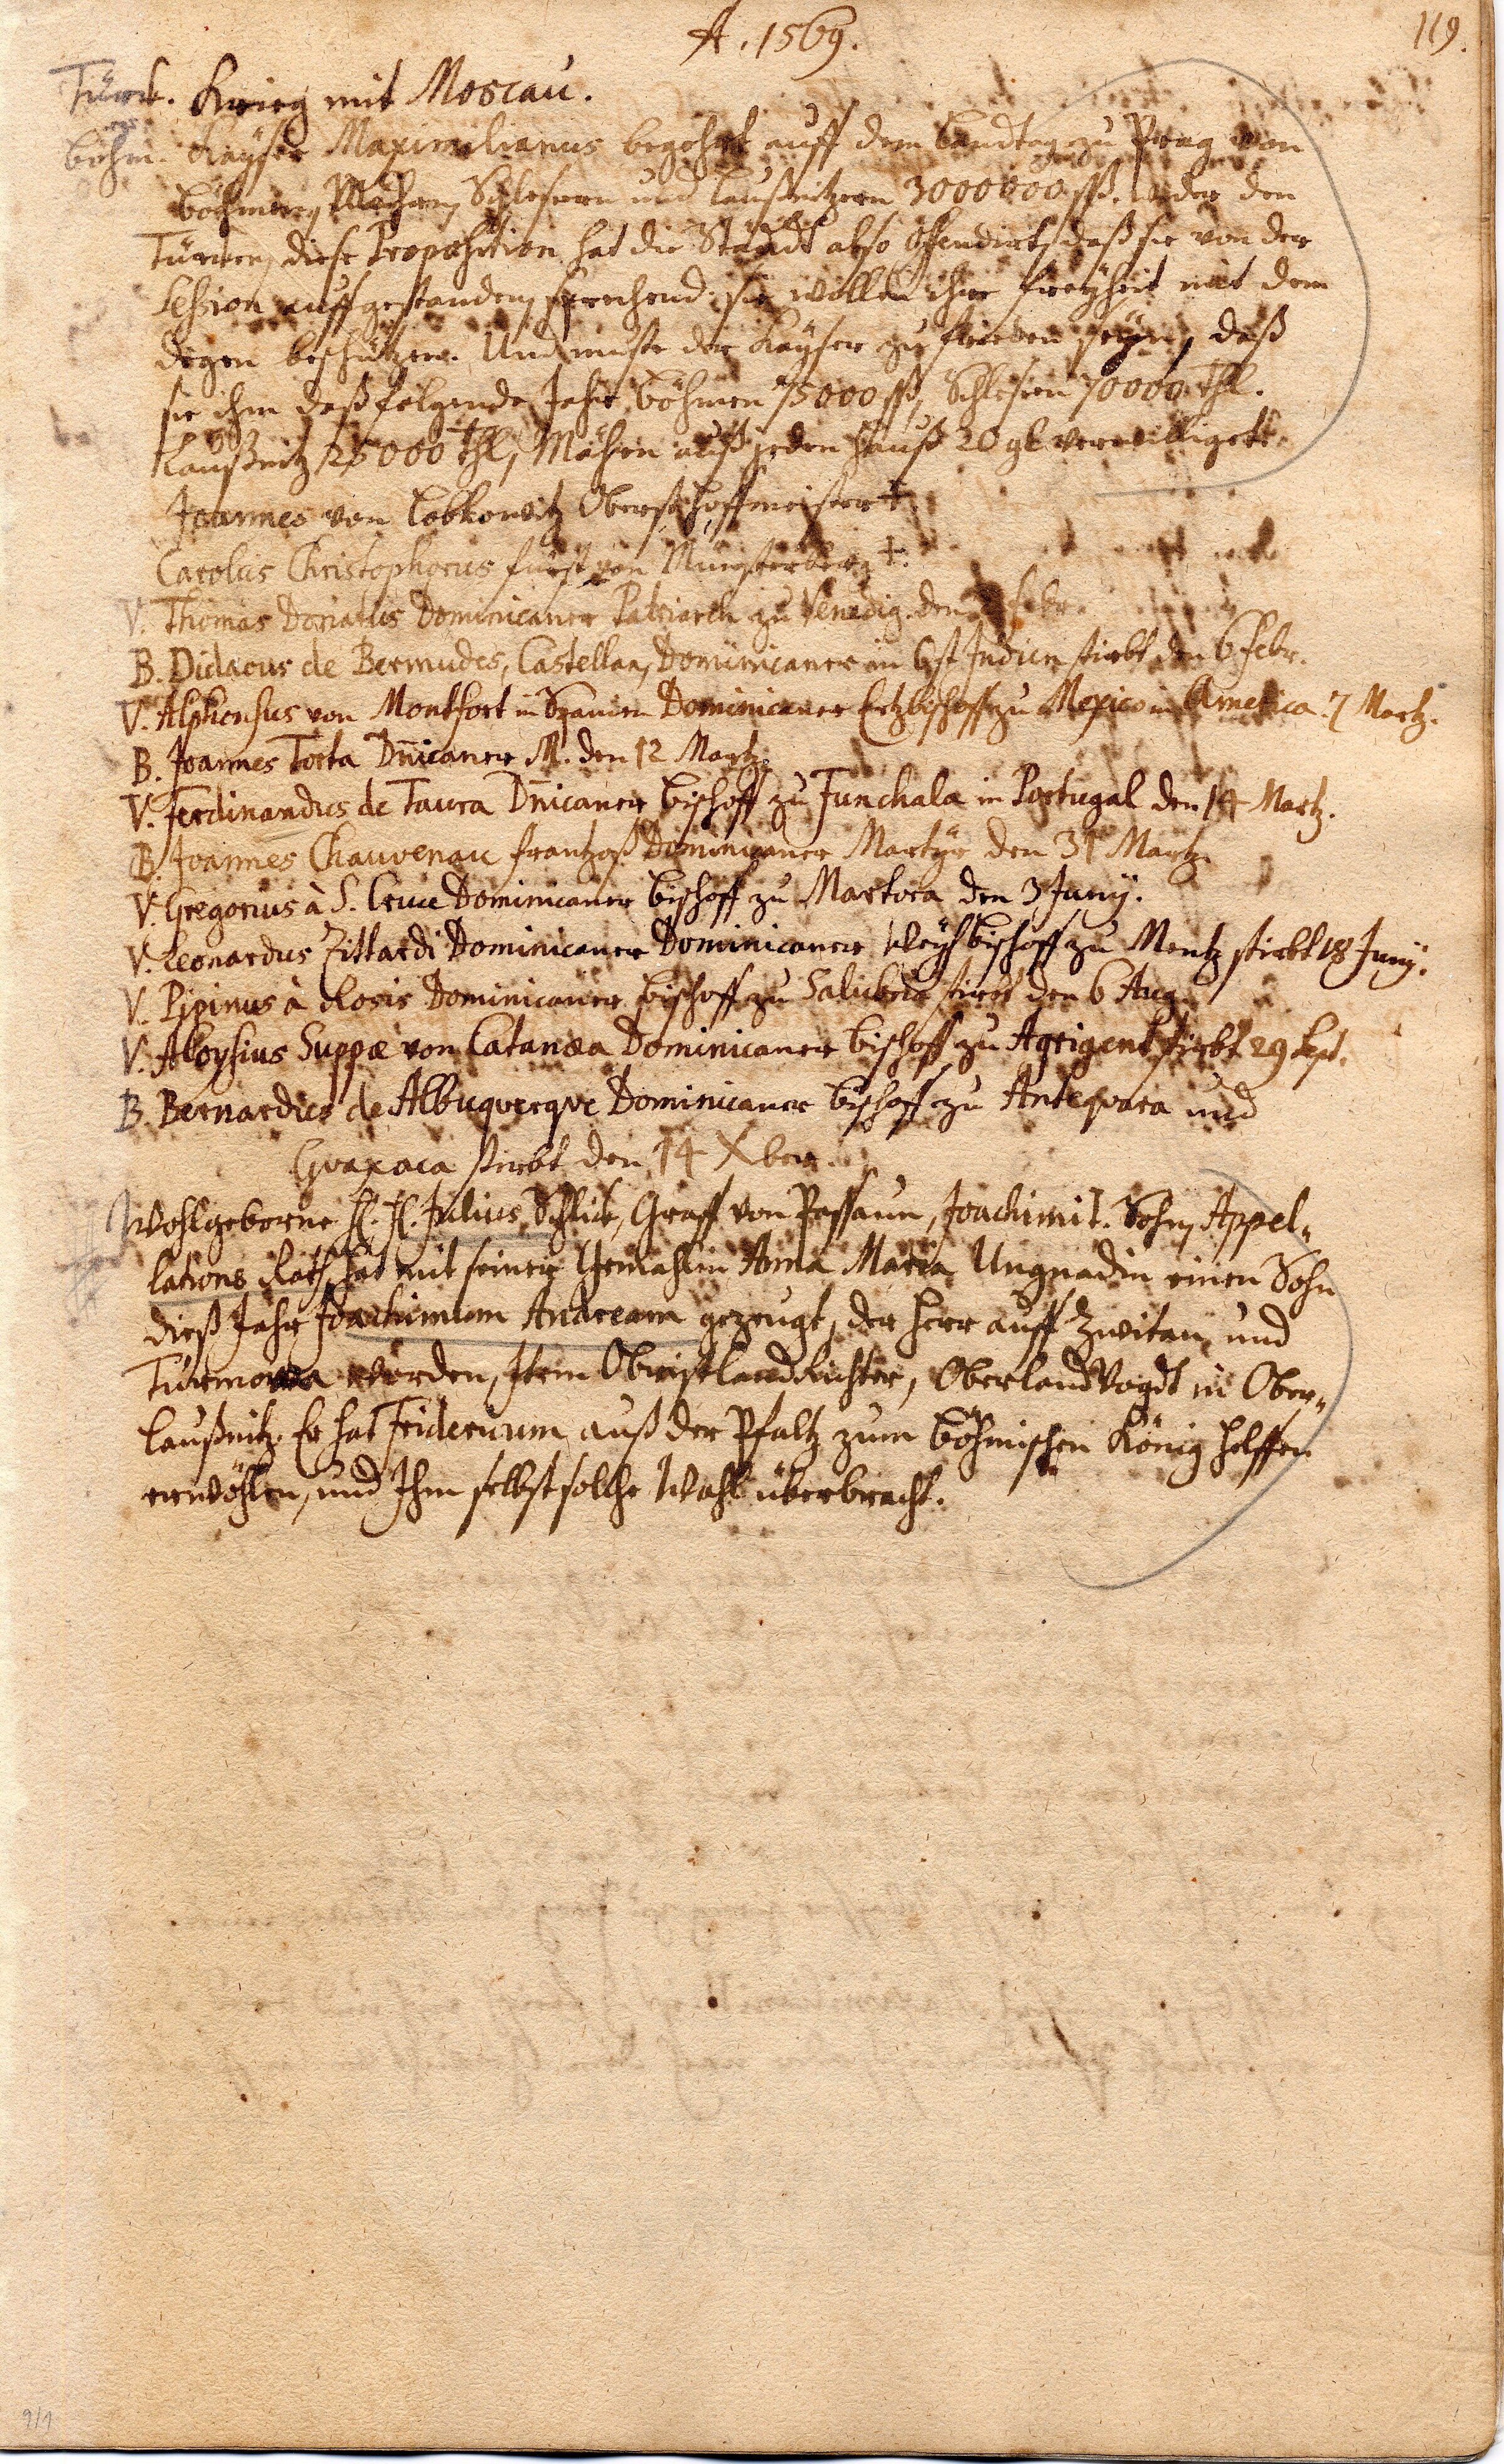 A. 1569.
119.
Türck. Krieg mit Moscau.
böhm. Kayser Maximilianus begehrt auff dem Landtag zu Prag von
Böhmen, Mährn, Schlesiern und Laußnitzern 3000000 ßß. wider den
Türcken, diese Proposition hat die Ständt also offendirt, daß sie von der
Session auffgestanden, sprechend: sie wollen ihre Freyheit mit dem
Degen beschützen. Und muste der Kayser zu frieden seyn, daß
sie ihm daß folgende Jahr Böhmen 75000 ßß, Schlesien 70000 Thl.
Laußnitz 25000 Thl, Mähren auß jeden Hauß 20 gl verwilliget.
Joannes von Lobkowitz Obersthoffmeister †.
Carolus Christophorus Fürst von Münsterberg †.
V. Thomas Donatus Dominicaner Patriarch zu Venedig den Febr.
B. Didacus de Bermudes, Castellan, Dominicaner in Ost Indien stirbt den 6 Febr.
V. Alphonsus von Montfort in Spanien Dominicaner Ertzbischoff zu Mexico in America 7 Martz.
B. Joannes Torta Dnicaner M. den 12 Martz
V. Ferdinandus de Taura Dnicaner Bischoff zu Funchala in Portugal den 14 Martz.
B. Joannes Chauvenau Frantzoß Dominicaner Martyr den 31 Martz
V. Gregorius à S. Cruce Dominicaner Bischoff zu Martora den 3 Juny.
V. Leonardus Zittardi Dominicaner Dominicaner Weyhbischoff zu Mentz stirbt 18 Juny.
V. Pipinus à Rosis Dominicaner Bischoff zu Salubria stirbt den 6 Aug.
V. Aloysius Suppæ von Catanæa Dominicaner Bischoff zu Agrigent stirbt 29 Sept.
B. Bernardus de Albuquerque Dominicaner Bischoff zu Antequara und
Guaxaca stirbt den 14 Xber.
Wohlgeborne H. H. Julius Schlick, Graff von Passaun, Joachimi t. Sohn, Appel-
lations Rath, hat mit seiner Gemahlin Anna Maria Ungnadin einen Sohn
dieß Jahr Joachimum Andream gezeugt, der Herr auff Zwitau und
Turmowa worden, Item Obristlandrichter, Oberlandvogdt in Ober-
laußnitz. Er hat Fridericum auß der Pfaltz zum Böhmischen König helffen
erwöhlen, und Ihm selbst solche Wahl überbracht.